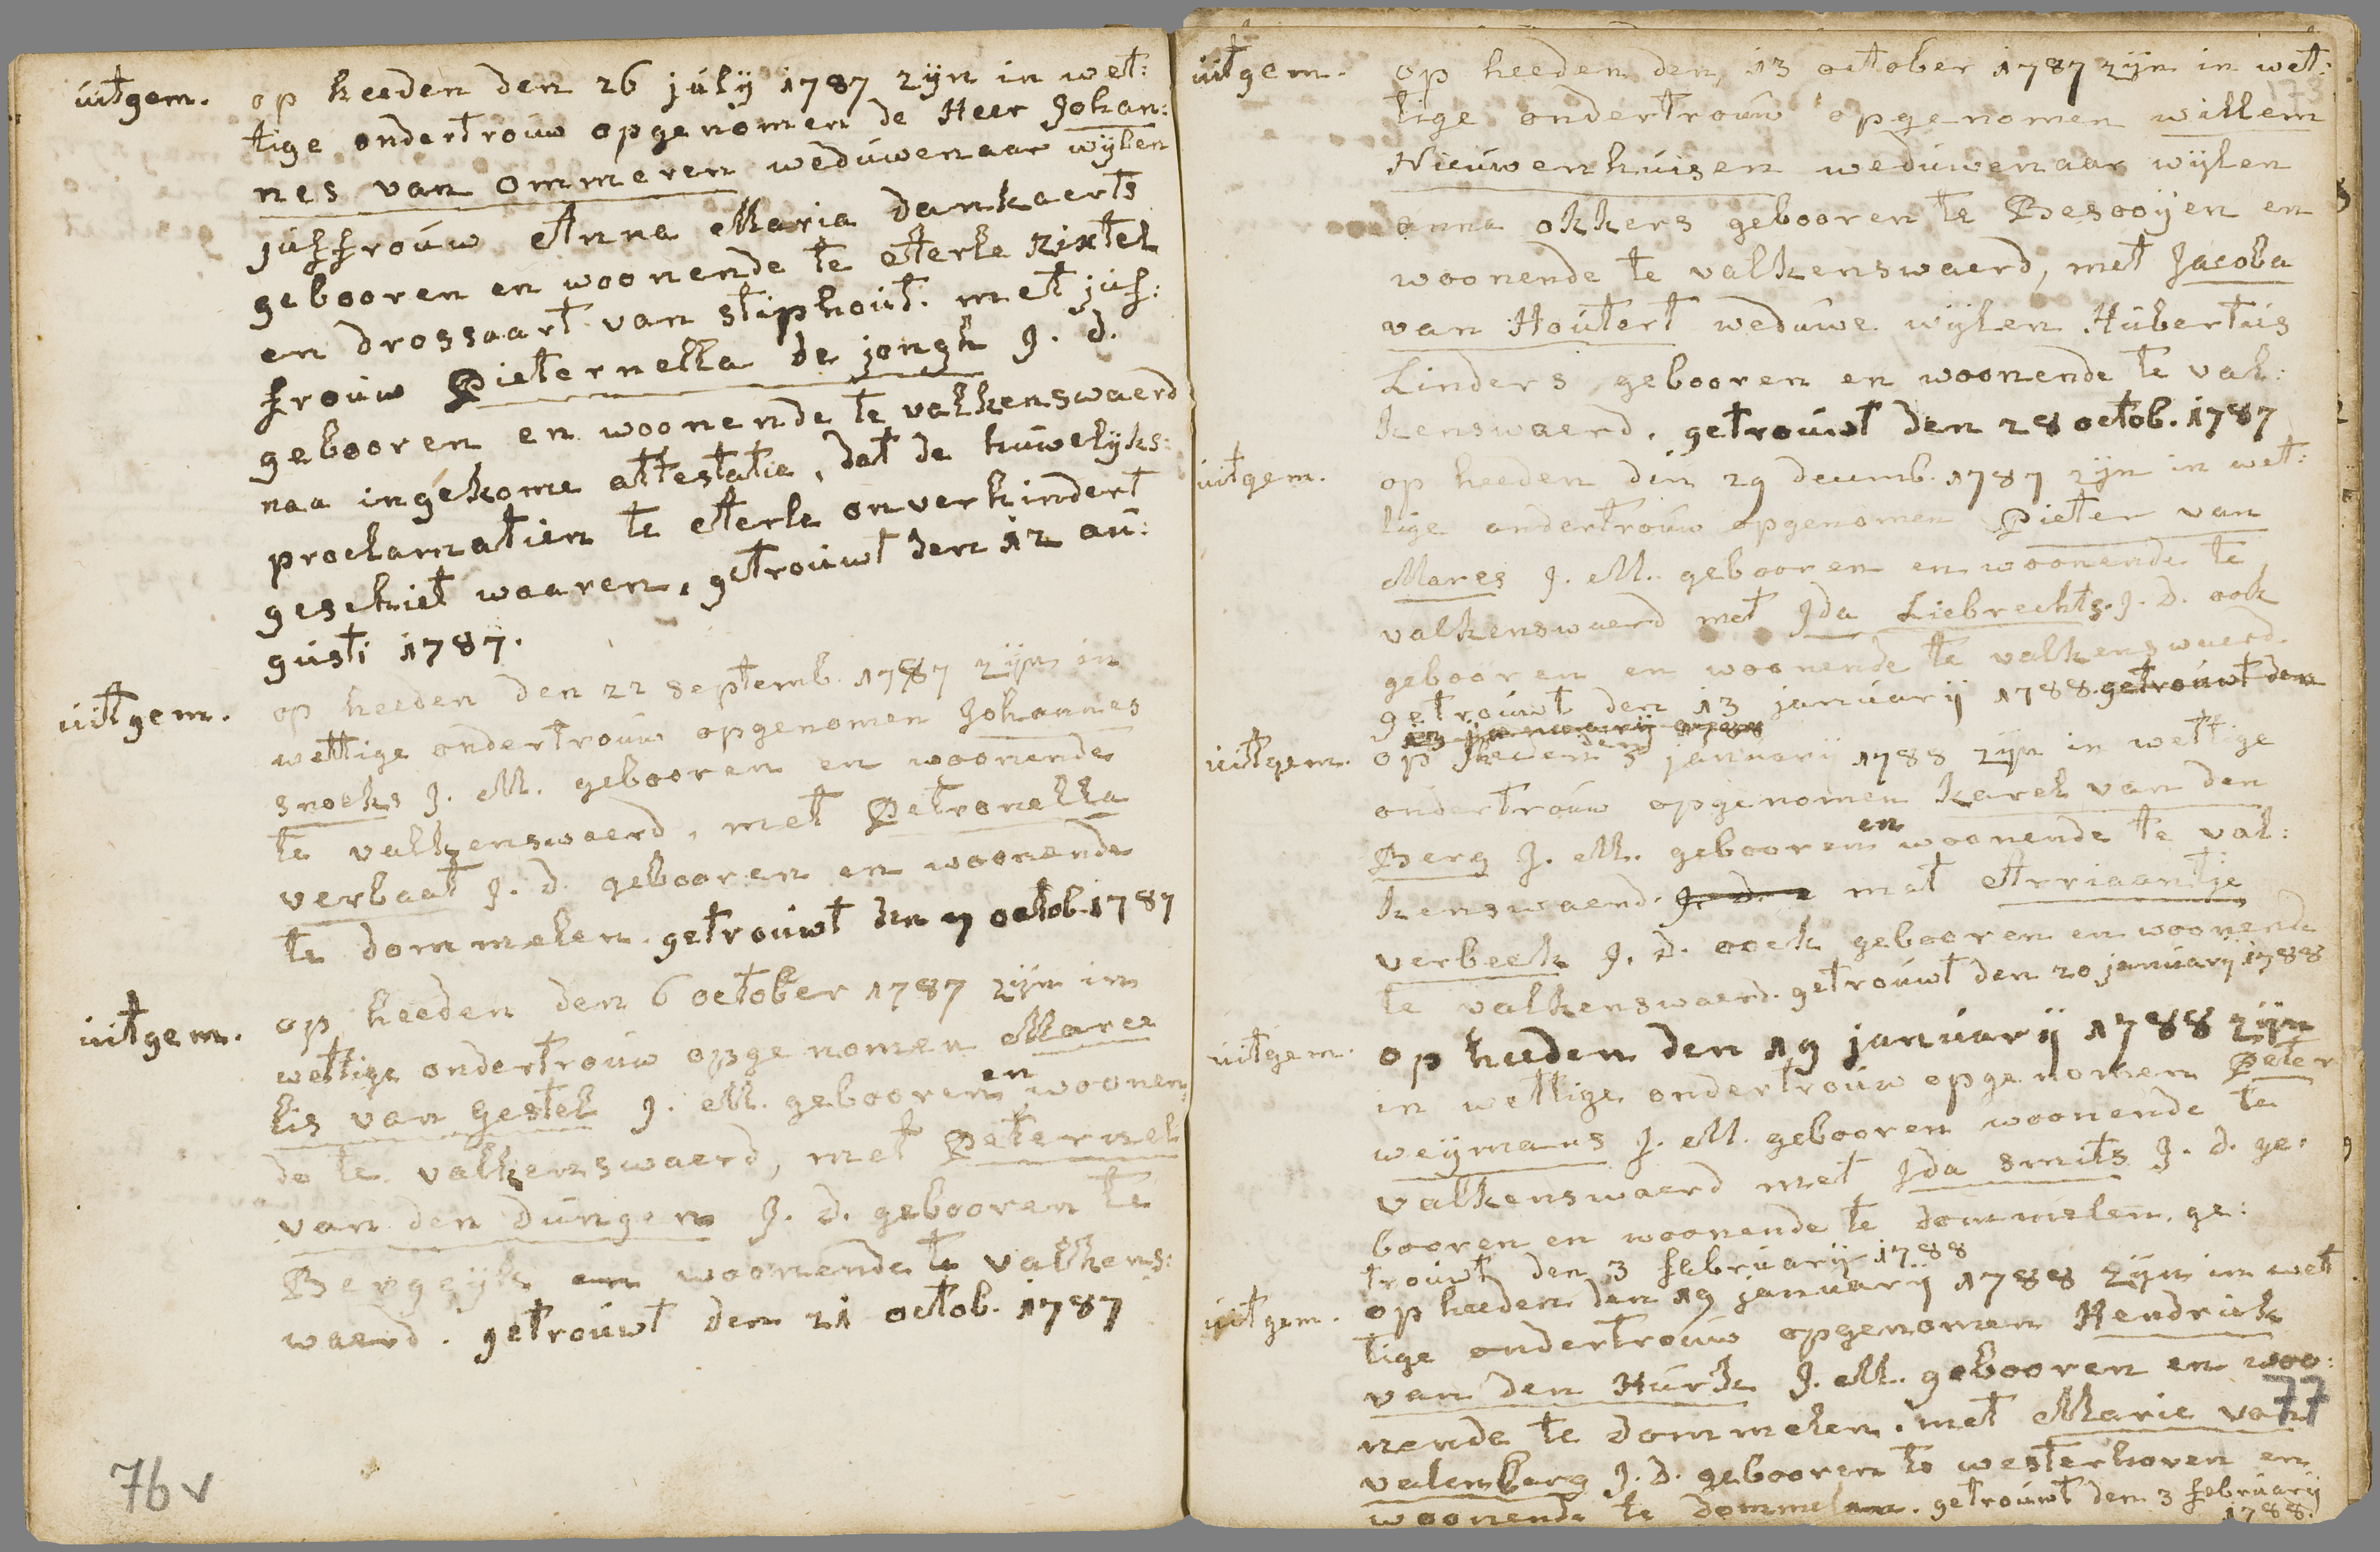 uitgem. op heeden den 26 julÿ 1787 zÿn in wet:
tige ondertrouw opgenomen de Heer Johan:
nes van ommeren weduwenaar wÿlen
juffrouw Anna Maria Dankaerts
gebooren en woonende te Aerle Rixtel
en drossaart van stiphout. met juf:
frouw Pieternella de jongh J. d.
gebooren en woonende te valkenswaerd
naa ingekome attestatie, dat de huwelÿks:
proclamatien te Aerle onverhindert
geschiet waaren, getrouwt den 12 au:
gusti 1787.
uitgem. op heeden den 22 septemb. 1787 zÿn in
wettige ondertrouw opgenomen Johannes
snoeks J. M. gebooren en woonende
te valkenswaerd, met Petronella
verbaat J. d. gebooren en woonende
te dommelen. getrouwt den 7 octob. 1787
uitgem. op heeden den 6 october 1787 zÿn in
wettige ondertrouw opgenomen Marce
lis van Gestel J. M. gebooren en woonen,
de te valkenswaerd, met Peternel
van den dungen J. d. gebooren te
Bergeÿk en woonende te valkens:
waerd. getrouwt den 21 octob. 1787
76v
uitgem. op heeden den, 13 october 1787 zÿn in wet:
tige ondertrouw opgenomen willem
Nieuwenhuisen weduwenaar wÿlen
anna okkers gebooren te Besooÿen en
woonende te valkenswaerd, met Jacoba
van Houtert weduwe wÿlen Hubertus
Linders, gebooren en woonende te val:
kenswaerd. getrouwt den 28 octob. 1787
uitgem. op heeden den 29 decemb. 1787 zÿn in wet:
tige ondertrouw opgenomen Pieter van
Mares J. M. gebooren en woonende te
valkenswaerd met Jda Liebrechts. J. d. ook
gebooren en woonende te valkenswaerd.
getrouwt den 13 januarÿ 1788. getrouwt den
13 januarÿ 1788
uitgem. op heeden den 3 januarÿ 1788 zÿn in wettige
ondertrouw opgenomen Karel van den
Berg J. M. gebooren en woonende te val:
kenswaerd. J. d. met Arriaantje
verbeek J. D. oock gebooren en woonende
te valkenswaerd. getrouwt den 20 januarÿ 1788
uitgem. op heeden den 19 januarÿ 1788 zÿn
in wettige ondertrouw opgenomen Peter
weÿmans J. M. gebooren woonende te
valkenswaerd met Jda smits J. d. ge:
booren en woonende te dommelen. ge:
trouwt den 3 februarÿ 1788
uitgem. op heeden den 19 januarÿ 1788 zÿn in wet
tige ondertrouw opgenomen Hendrick
van den Hurk J. M. gebooren en woo:
77
nende te dommelen. met Marie van
valenberg J. d. gebooren te westerhoven en
woonende te dommelen. getrouwt den 3 februarÿ
1788.